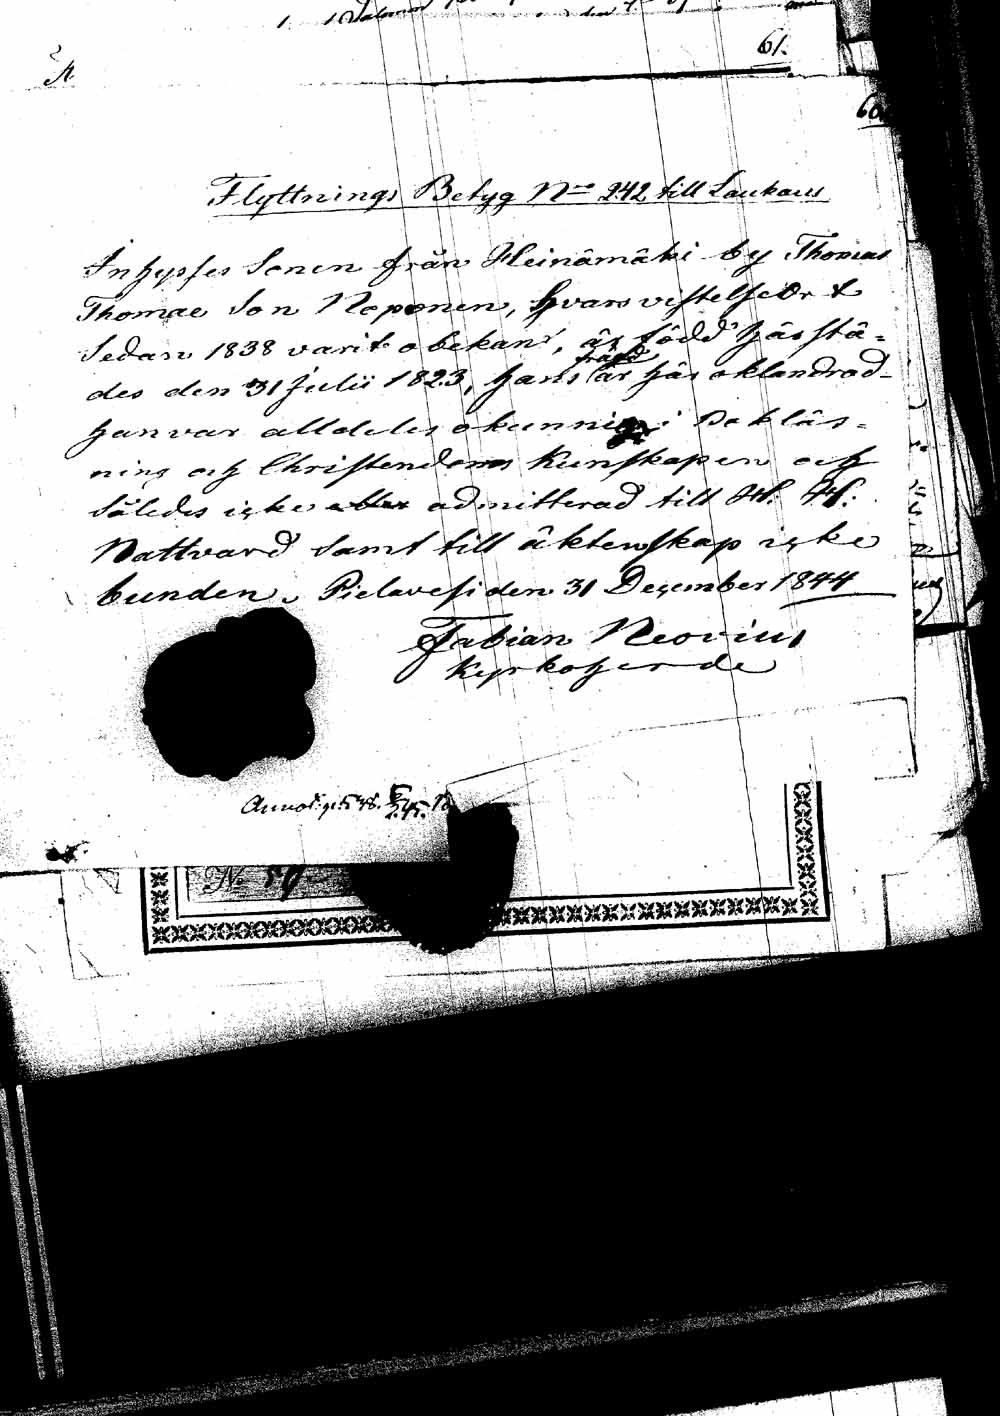 61.
60.
Flyttnings Betyg No 242 till Laukaus
Inhyses Sonen från Heinämäki by Thomas
Thomae Son Noponen, hvars vistelseOrt
Sedan 1838 varit obekant, är född härstä=
des den 31 Julii 1823, hans frägd är här oklandrad-
han var alldeles okunnig i Bokläs=
ning och Christendoms Kunskapen och
således icke admitterad till H. H.
Nattvard samt till äktenskap icke
bunden. Pielavesi den 31 December 1844
Fabian Neovius
Kyrkoherde
No